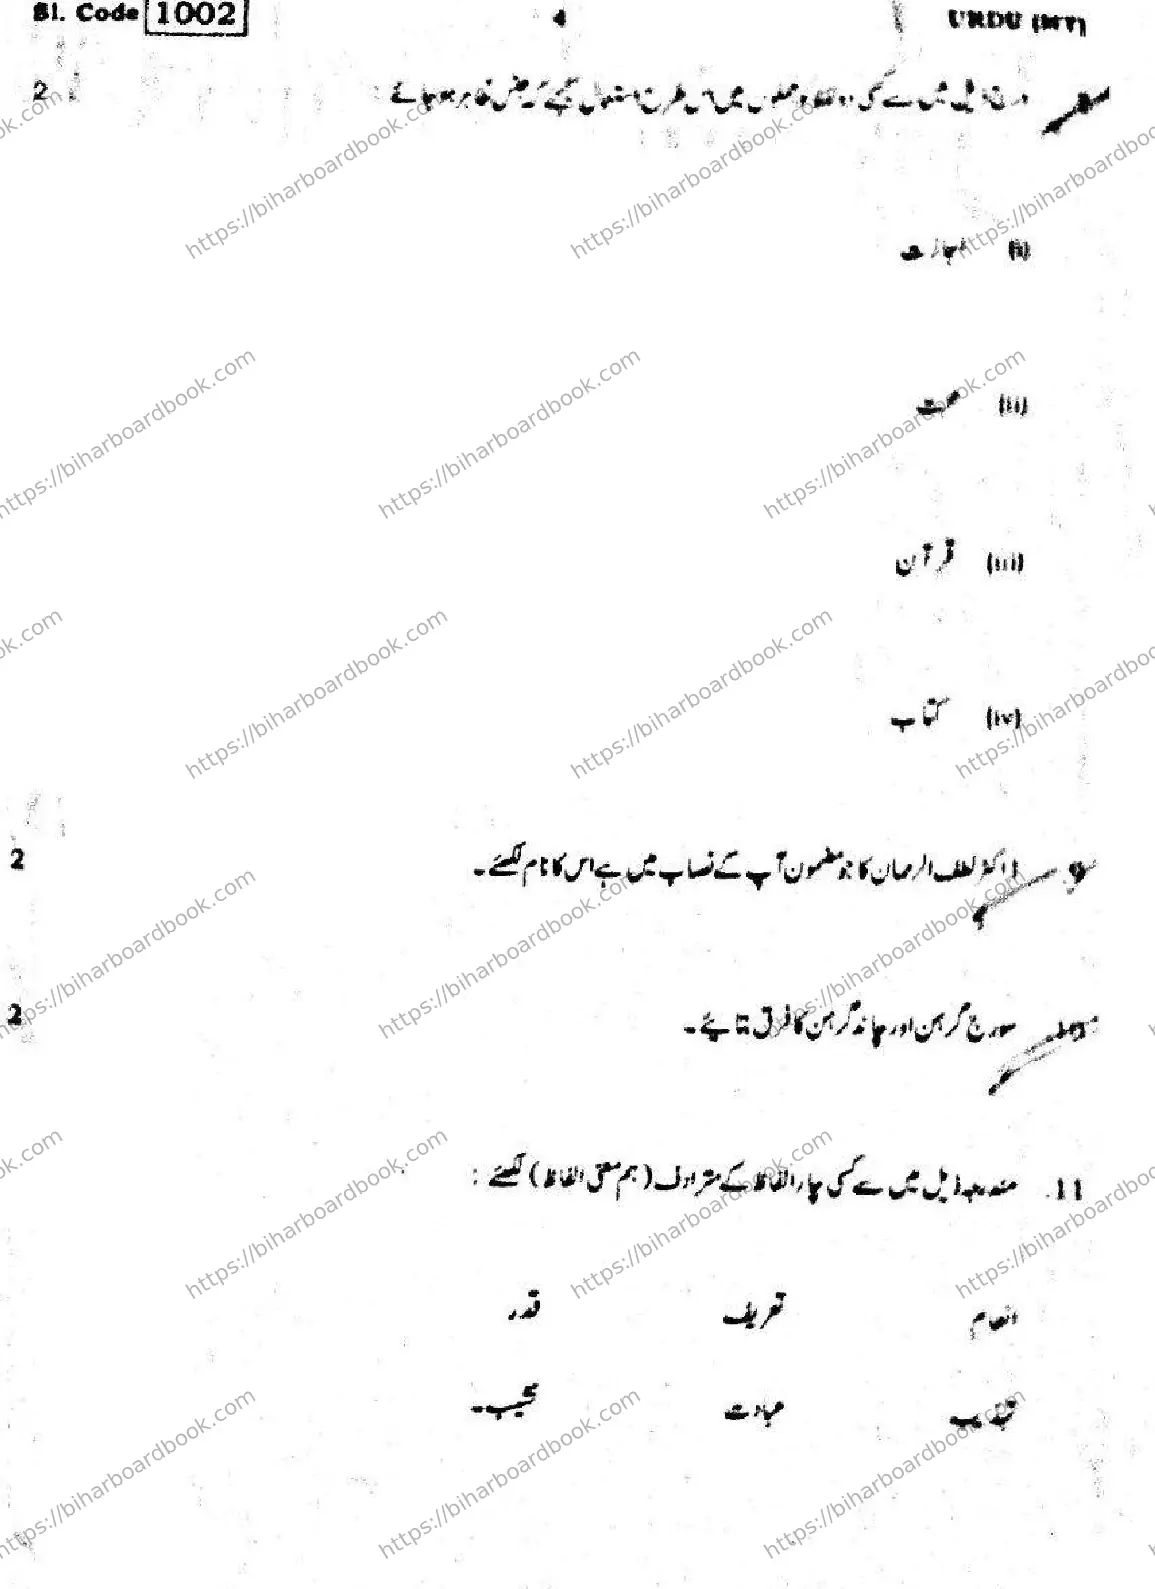 Sl. Code 1002 4 URDU (MT)
8. درج ذیل میں سے کسی دو الفاظ کو جملوں میں اس طرح استعمال کیجئے کہ جنس ظاہر ہو جائے : 2
(i) اجازت
(ii) صحت
(iii) قرآن
(iv) کتاب
9. ڈاکٹر لطف الرحمان کا جو مضمون آپ کے نصاب میں ہے اس کا نام لکھئے۔ 2
10. سورج گرہن اور چاند گرہن کا فرق بتائیے۔ 2
11. مندرجہ ذیل میں سے کسی چار الفاظ کے مترادف (ہم معنی الفاظ) لکھئے :
انعام تعریف قدر
تہذیب عبادت عجیب۔
https://biharboardbook.com